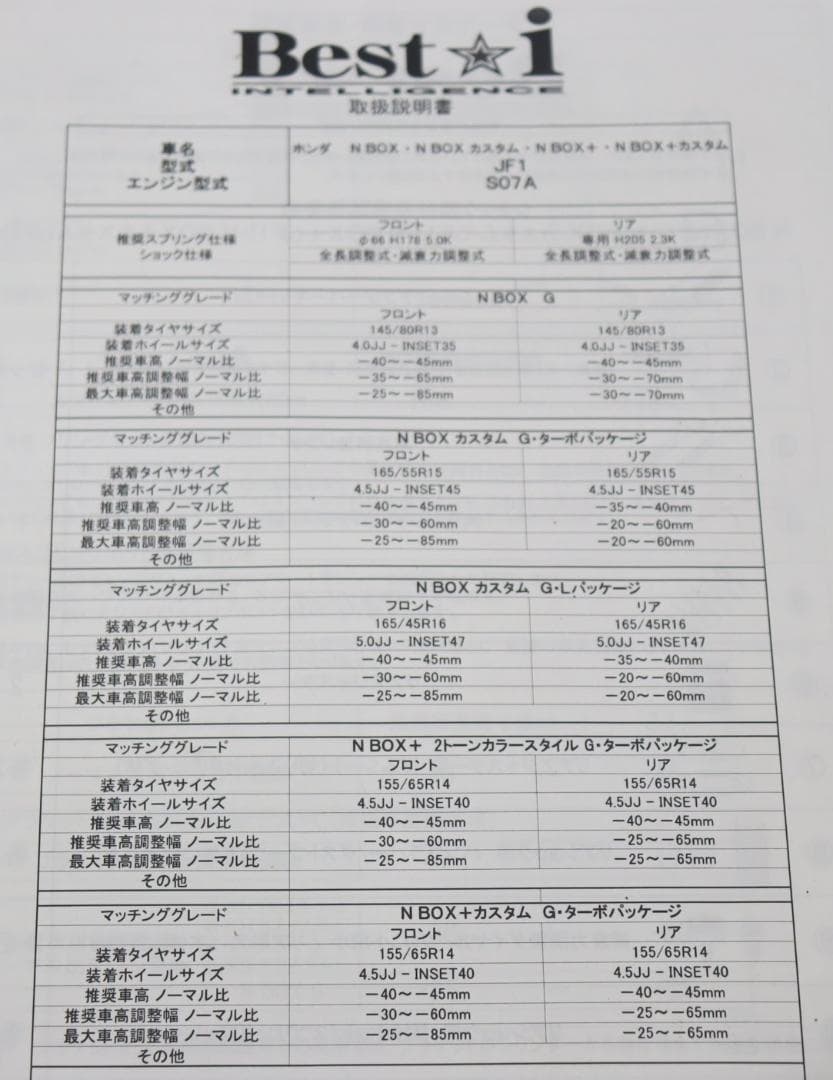 Best☆i
INTELLIGENCE
取扱説明書
車名 ホンダ N BOX・N BOX カスタム・N BOX+・N BOX+カスタム
型式 JF1
エンジン型式 S07A
フロント リア
推奨スプリング仕様 φ66 H178 5.0K 専用 H205 2.3K
ショック仕様 全長調整式・減衰力調整式 全長調整式・減衰力調整式
マッチンググレード N BOX G
フロント リア
装着タイヤサイズ 145/80R13 145/80R13
装着ホイールサイズ 4.0JJ - INSET35 4.0JJ - INSET35
推奨車高 ノーマル比 -40~-45mm -40~-45mm
推奨車高調整幅 ノーマル比 -35~-65mm -30~-70mm
最大車高調整幅 ノーマル比 -25~-85mm -30~-70mm
その他
マッチンググレード N BOX カスタム G・ターボパッケージ
フロント リア
装着タイヤサイズ 165/55R15 165/55R15
装着ホイールサイズ 4.5JJ - INSET45 4.5JJ - INSET45
推奨車高 ノーマル比 -40~-45mm -35~-40mm
推奨車高調整幅 ノーマル比 -30~-60mm -20~-60mm
最大車高調整幅 ノーマル比 -25~-85mm -20~-60mm
その他
マッチンググレード N BOX カスタム G・Lパッケージ
フロント リア
装着タイヤサイズ 165/45R16 165/45R16
装着ホイールサイズ 5.0JJ - INSET47 5.0JJ - INSET47
推奨車高 ノーマル比 -40~-45mm -35~-40mm
推奨車高調整幅 ノーマル比 -30~-60mm -20~-60mm
最大車高調整幅 ノーマル比 -25~-85mm -20~-60mm
その他
マッチンググレード N BOX+ 2トーンカラースタイル G・ターボパッケージ
フロント リア
装着タイヤサイズ 155/65R14 155/65R14
装着ホイールサイズ 4.5JJ - INSET40 4.5JJ - INSET40
推奨車高 ノーマル比 -40~-45mm -40~-45mm
推奨車高調整幅 ノーマル比 -30~-60mm -25~-65mm
最大車高調整幅 ノーマル比 -25~-85mm -25~-65mm
その他
マッチンググレード N BOX+カスタム G・ターボパッケージ
フロント リア
装着タイヤサイズ 155/65R14 155/65R14
装着ホイールサイズ 4.5JJ - INSET40 4.5JJ - INSET40
推奨車高 ノーマル比 -40~-45mm -40~-45mm
推奨車高調整幅 ノーマル比 -30~-60mm -25~-65mm
最大車高調整幅 ノーマル比 -25~-85mm -25~-65mm
その他